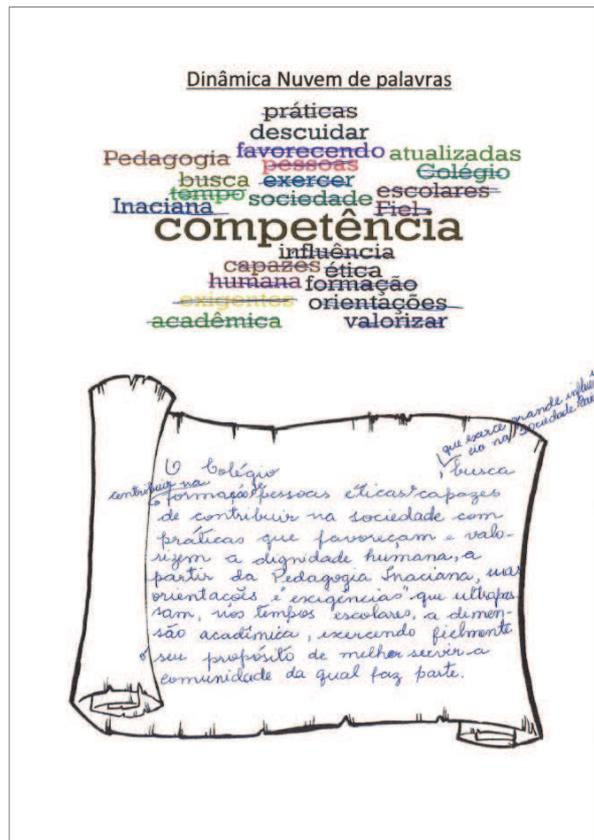 Dinâmica Nuvem de palavras
práticas
descuidar
favorecendo atualizadas
Pedagogia pessoas Colégio
busca exercer escolares
tempo sociedade Fiel
Inaciana
competência
influência
capazes ética
humana formação
exigentes orientações
acadêmica valorizar
que exerce grande influên
cia na sociedade
O Colégio , busca
contribuir na
formação de pessoas éticas e capazes
de contribuir na sociedade com
práticas que favoreçam e valo-
rizem a dignidade humana, a
partir da Pedagogia Inaciana, suas
orientações e exigências que ultrapas
sam, nos tempos escolares, a dimen-
são acadêmica, exercendo fielmente
o seu propósito de melhor servir a
comunidade da qual faz parte.